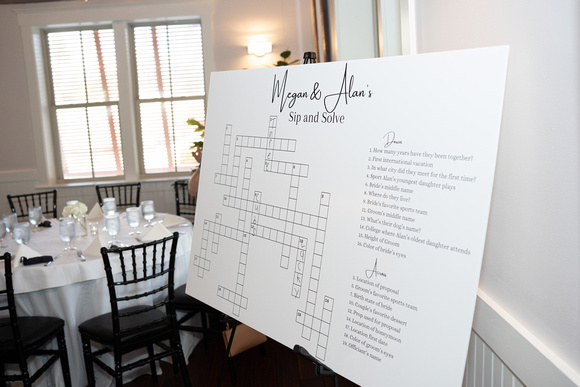 Megan & Alan's
Sip and Solve
Down
1. How many years have they been together?
2. First international vacation
3. In what city did they meet for the first time?
4. Sport Alan's youngest daughter plays
6. Bride's middle name
8. Where do they live?
9. Bride's favorite sports team
11. Groom's middle name
13. What's their dog's name?
14. College where Alan's oldest daughter attends
15. Height of Groom
16. Color of bride's eyes
Across
2. Location of proposal
5. Groom's favorite sports team
7. Birth state of bride
10. Couple's favorite dessert
12. Prop used for proposal
14. Location of honeymoon
17. Location first date
18. Color of groom's eyes
19. Officiant's name